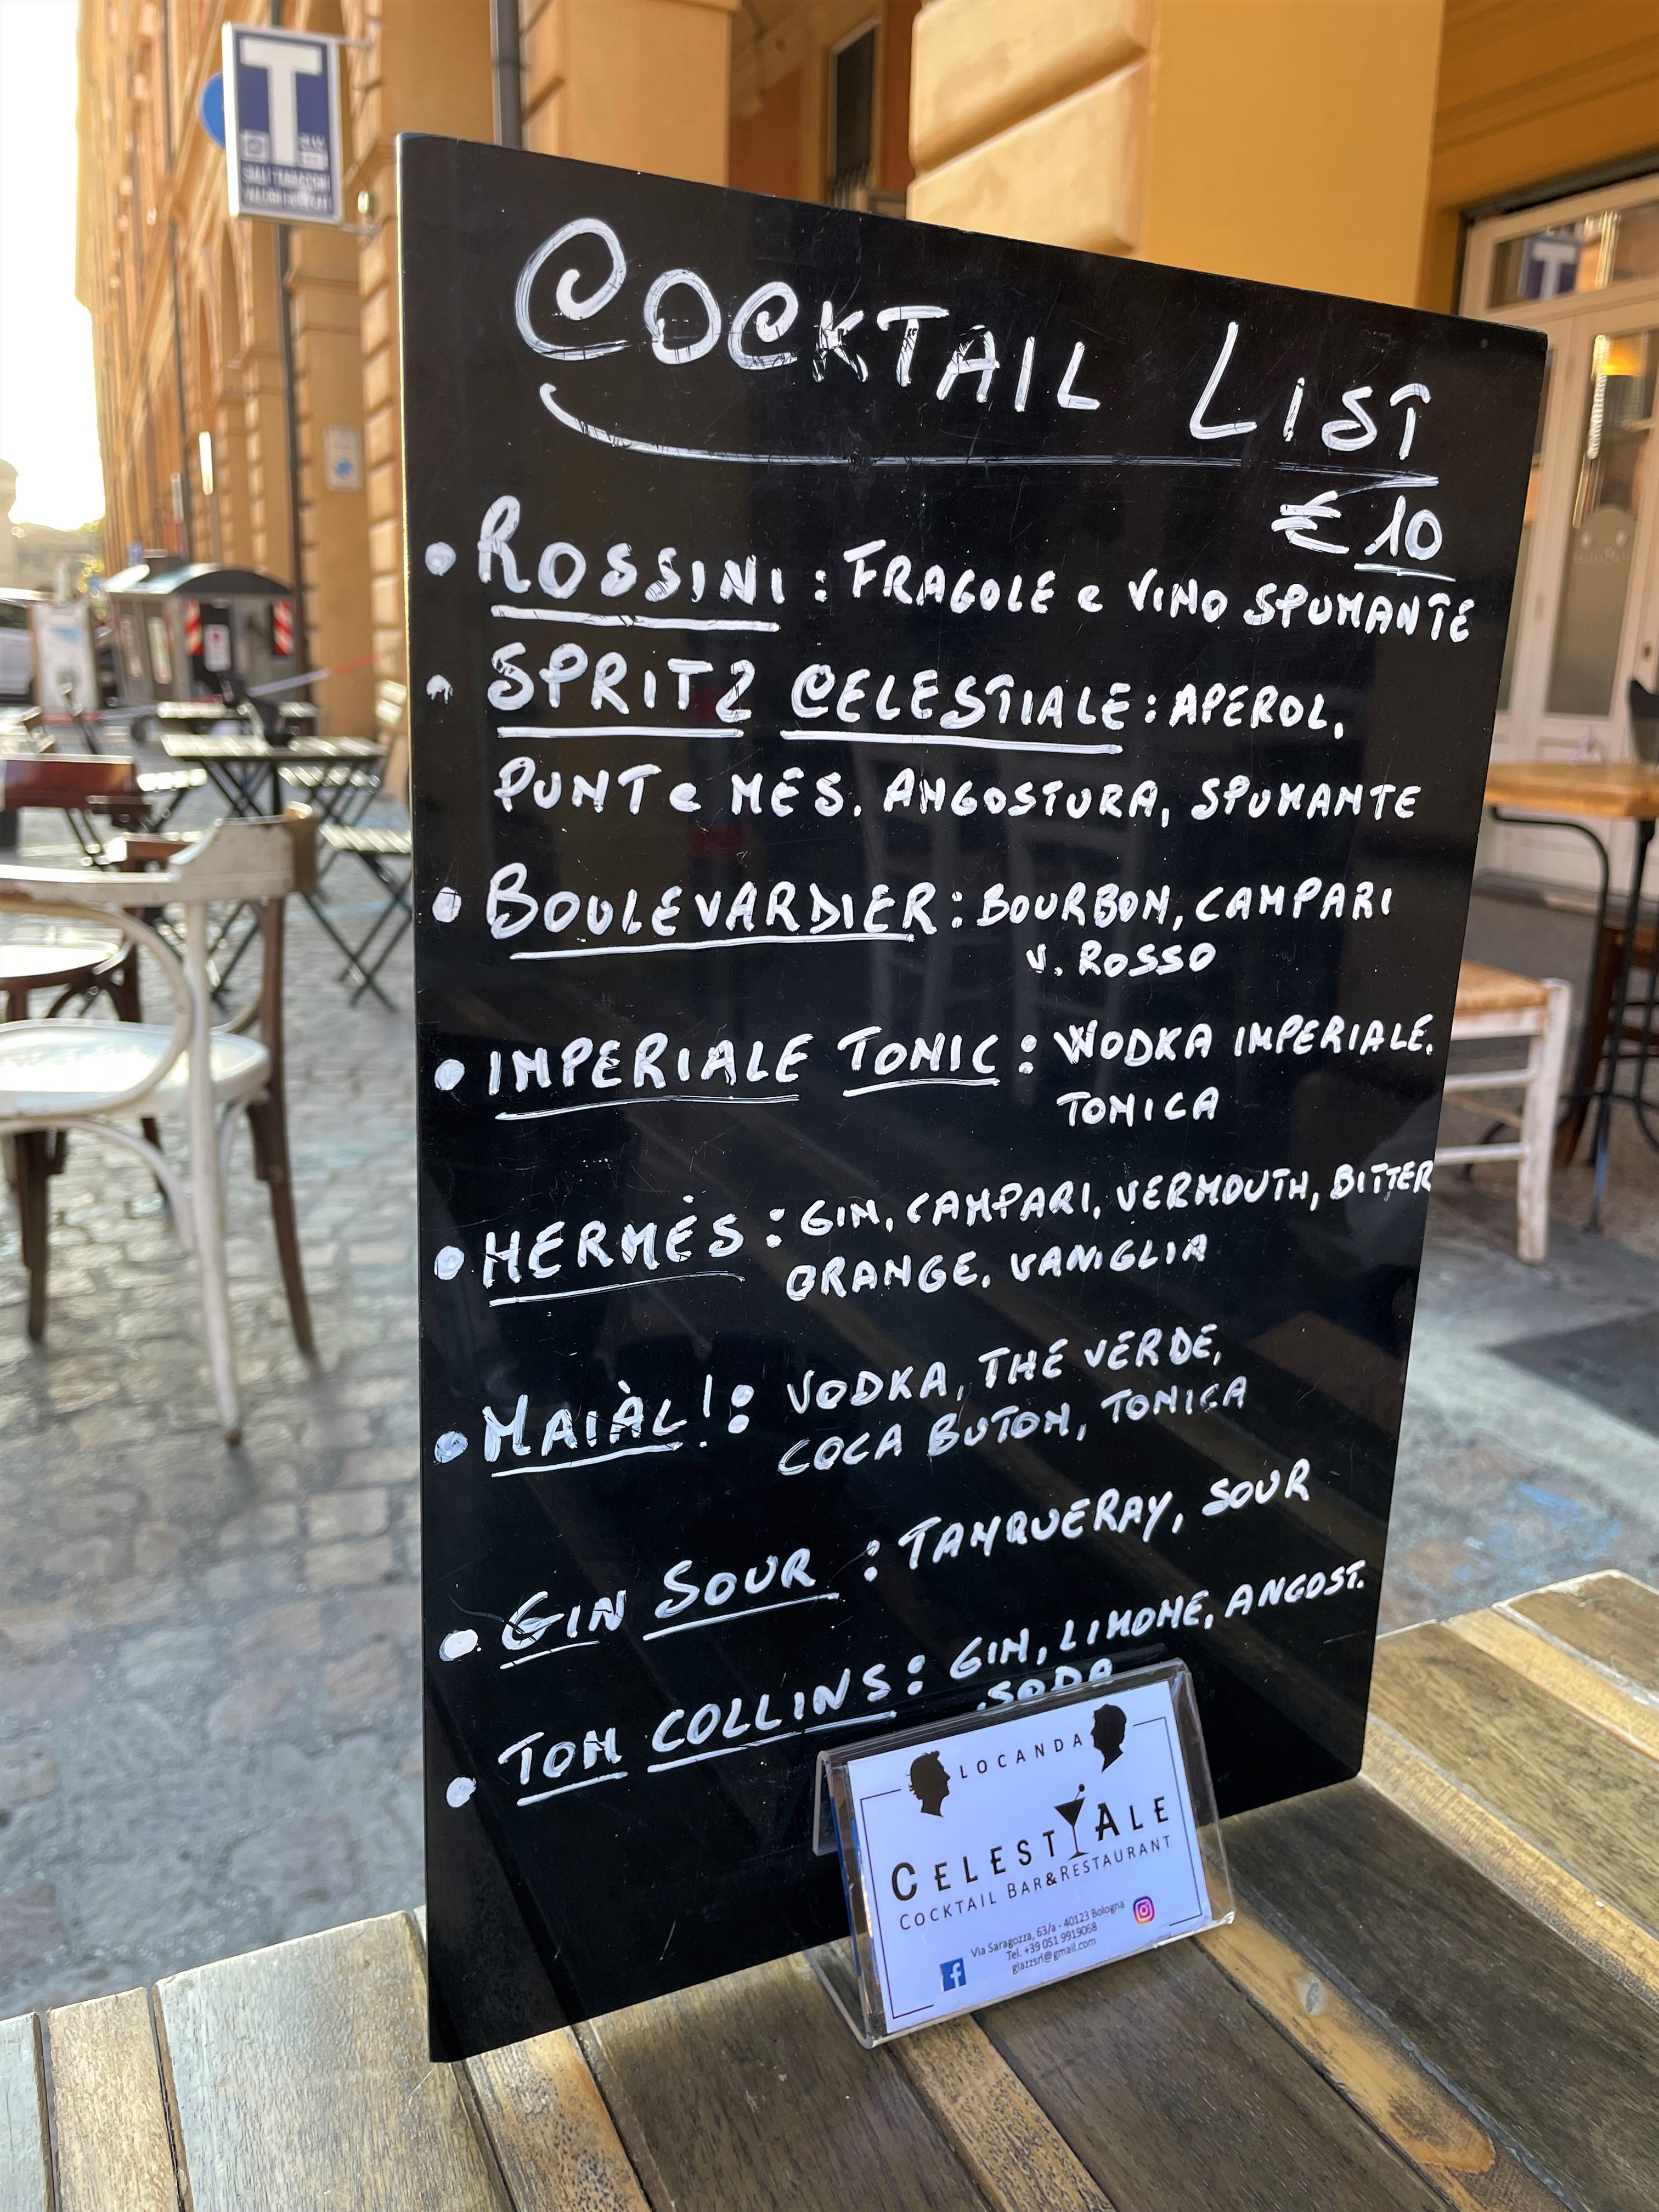 T
COCKTAIL LIST
€ 10
• ROSSINI : FRAGOLE e VINO SPUMANTE
• SPRITZ CELESTIALE : APEROL,
PUNT e MES, ANGOSTURA, SPUMANTE
• BOULEVARDIER : BOURBON, CAMPARI
V. ROSSO
• IMPERIALE TONIC : WODKA IMPERIALE,
TONICA
• HERMÈS : GIN, CAMPARI, VERMOUTH, BITTER
ORANGE, VANIGLIA
• MAIÀL! : VODKA, THÉ VERDE,
COCA BUTON, TONICA
• GIN SOUR : TANQUERAY, SOUR
• TOM COLLINS : GIN, LIMONE, ANGOST.
SODA
LOCANDA
CELESTYALE
COCKTAIL BAR&RESTAURANT
Via Saragozza, 63/a - 40123 Bologna
Tel. +39 051 9919068
giazzsrl@gmail.com
f